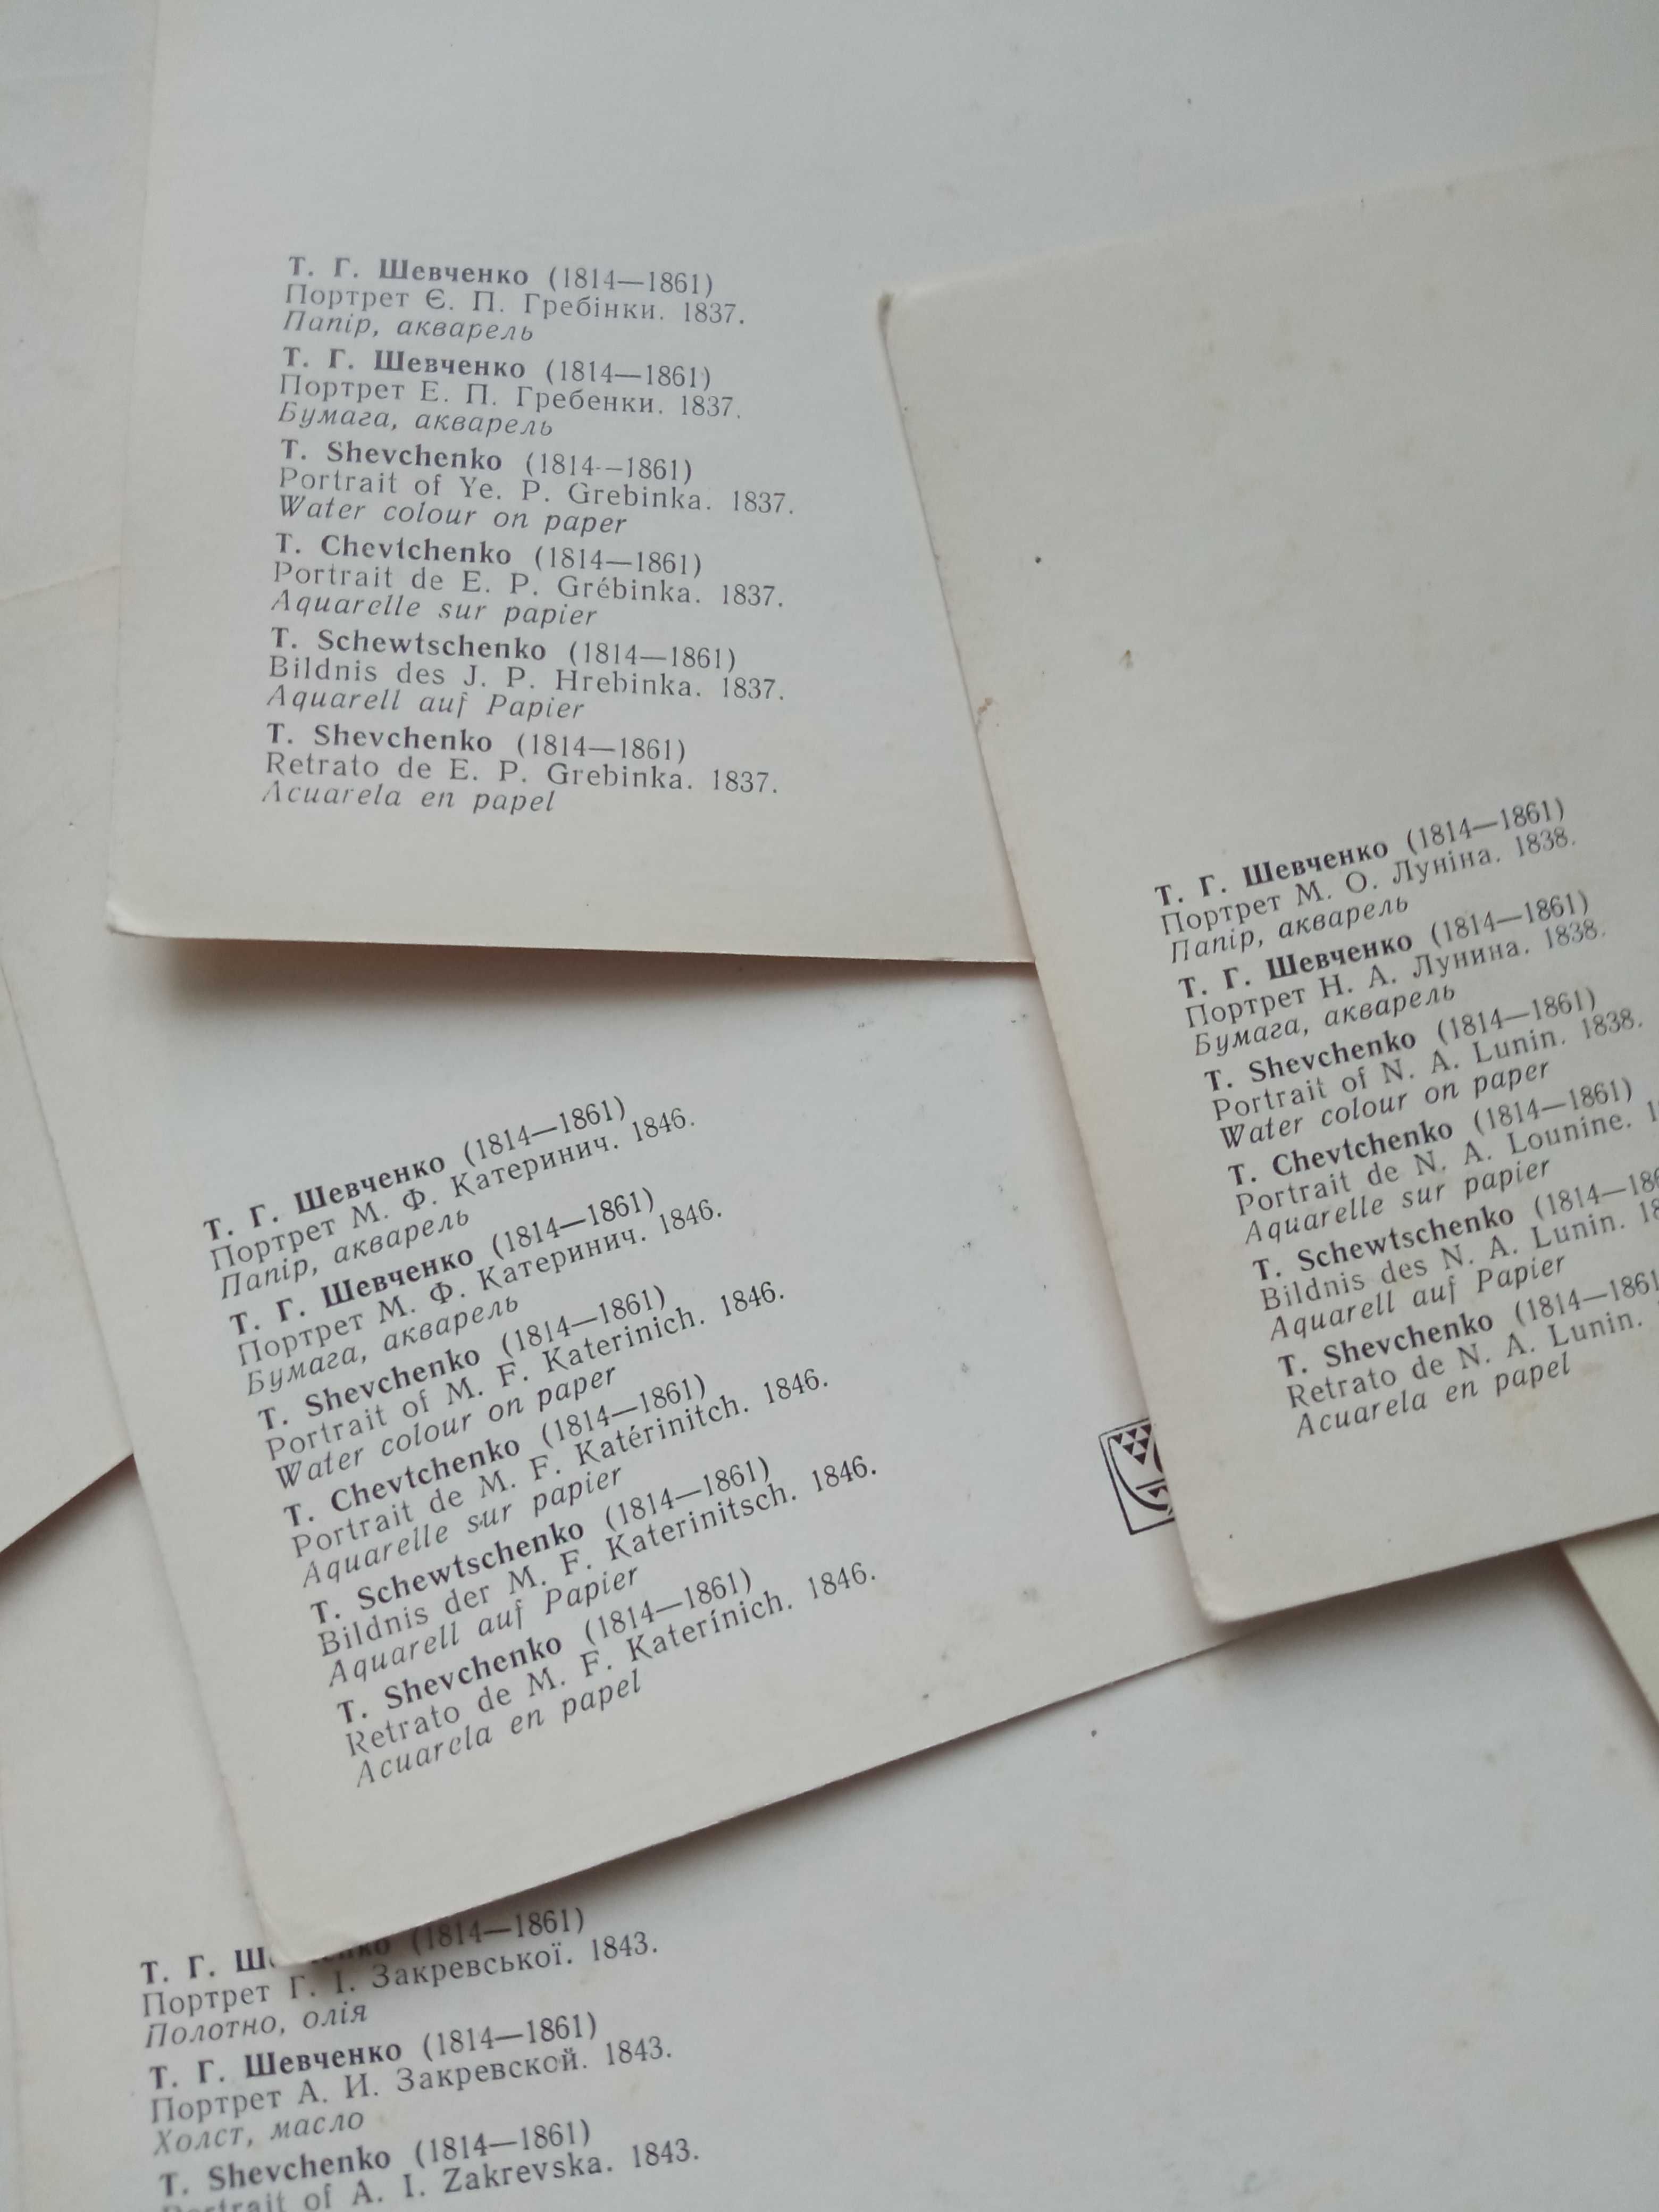 Т. Г. Шевченко (1814—1861)
Портрет Є. П. Гребінки. 1837.
Папір, акварель
Т. Г. Шевченко (1814—1861)
Портрет Е. П. Гребенки. 1837.
Бумага, акварель
T. Shevchenko (1814—1861)
Portrait of Ye. P. Grebinka. 1837.
Water colour on paper
T. Chevtchenko (1814—1861)
Portrait de E. P. Grébinka. 1837.
Aquarelle sur papier
T. Schewtschenko (1814—1861)
Bildnis des J. P. Hrebinka. 1837.
Aquarell auf Papier
T. Shevchenko (1814—1861)
Retrato de E. P. Grebinka. 1837.
Acuarela en papel
Т. Г. Шевченко (1814—1861)
Портрет М. О. Луніна. 1838.
Папір, акварель
Т. Г. Шевченко (1814—1861)
Портрет Н. А. Лунина. 1838.
Бумага, акварель
T. Shevchenko (1814—1861)
Portrait of N. A. Lunin. 1838.
Water colour on paper
T. Chevtchenko (1814—1861)
Portrait de N. A. Lounine.
Aquarelle sur papier
T. Schewtschenko
Bildnis des N. A. Lunin.
Aquarell auf Papier
T. Shevchenko (1814—1861
Retrato de N. A. Lunin.
Acuarela en papel
Т. Г. Шевченко (1814—1861)
Портрет М. Ф. Катеринич. 1846.
Папір, акварель
Т. Г. Шевченко (1814—1861)
Портрет М. Ф. Катеринич. 1846.
Бумага, акварель
T. Shevchenko (1814—1861)
Portrait of M. F. Katerinich. 1846.
Water colour on paper
T. Chevtchenko (1814—1861)
Portrait de M. F. Katérinitch. 1846.
Aquarelle sur papier
T. Schewtschenko (1814—1861)
Bildnis der M. F. Katerinitsch. 1846.
Aquarell auf Papier
T. Shevchenko (1814—1861)
Retrato de M. F. Katerínich. 1846.
Acuarela en papel
Т. Г. (1814—1861)
Портрет Г. І. Закревської. 1843.
Полотно, олія
Т. Г. Шевченко (1814—1861)
Портрет А. И. Закревской. 1843.
Холст, масло
T. Shevchenko (1814—1861)
Portrait of A. I. Zakrevska. 1843.